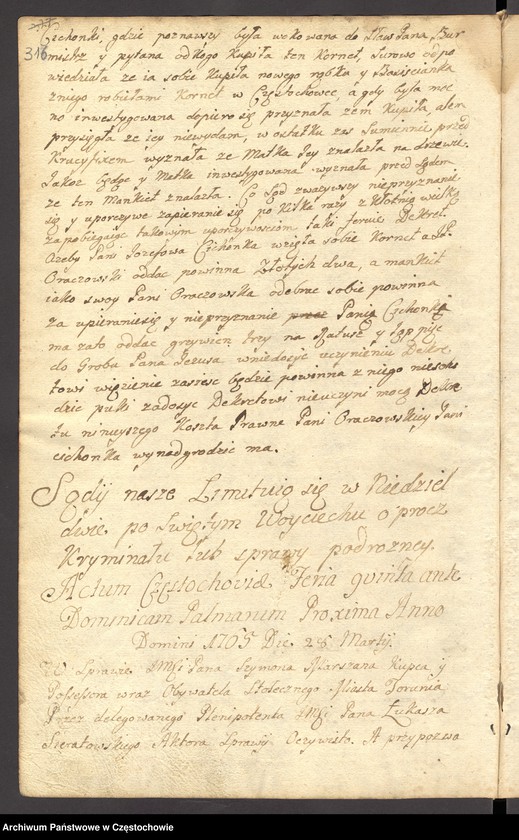 316
Cichonki, gdzie poznawszy była wokowana do Sławetnego Pana Bur
mistrz y pytana od kogo kupiła ten Kornet, Surowo odpo
wiedziała ze ia sobie kupiła nowego rąbka y
robiełami Kornet w Częstochowce, a gdy była moc
no inwestygowana dopiero się przyznała zem kupiła, alem
przysięgła ze iey niewydam, w ostatku zas Sumiennie przed
Krucyfixem wyznała ze Matka Jey znalazła na drzewie.
Jakoz będąc y Matka inwestygowana wyznała przed Sądem
ze ten Mankiet znalazła. Co Sąd zwazywszy nieprzyznanie
się y uporczywe zapieranie się po kilka razy z kłotnią wielką
zapobiegaiąc takowym uporczywosciom taki feruie Dekret.
Azeby Pani Jozefowa Cichonka wzięła sobie Kornet a JP.
Oraczowski oddac powinna Złotych dwa, a mankiet
iako swoy Pani Oraczowska odebrac sobie powinna
za upieranie się y nieprzyznanie przez Panią Cichonkę
ma zato oddac grzywien trzy na Ratusz y łapnic
do Grobu Pana Jezusa wniedosyc uczynieniu Dekre
towi więzienie zasiesc będzie powinna z niego niescho
dzic puki zadosyc Dekretowi nieuczyni mocą Dekre
tu ninieyszego Koszta Prawne Pani Oraczowskiey Pani
cichonka wynadgrodzic ma.
Sądy nasze Limituią się w Niedziel
dwie po Swiętym Woyciechu oprocz
Kryminału lub sprawy podrozney.
Actum Częstochoviæ Feria quinta ante
Dominicam Palmarum Proxima Anno
Domini 1765 Die 28 Martij.
W Sprawie JMści Pana Szymona Marszana Kupca y
Possessora wraz Obywatela Stołecznego Miasta Torunia
Przez delegowanego Plenipotenta JMści Pana Łukasza
Sieratowskiego Aktora Sprawy Oczywisto. A przypozwa
Archiwum Państwowe w Częstochowie